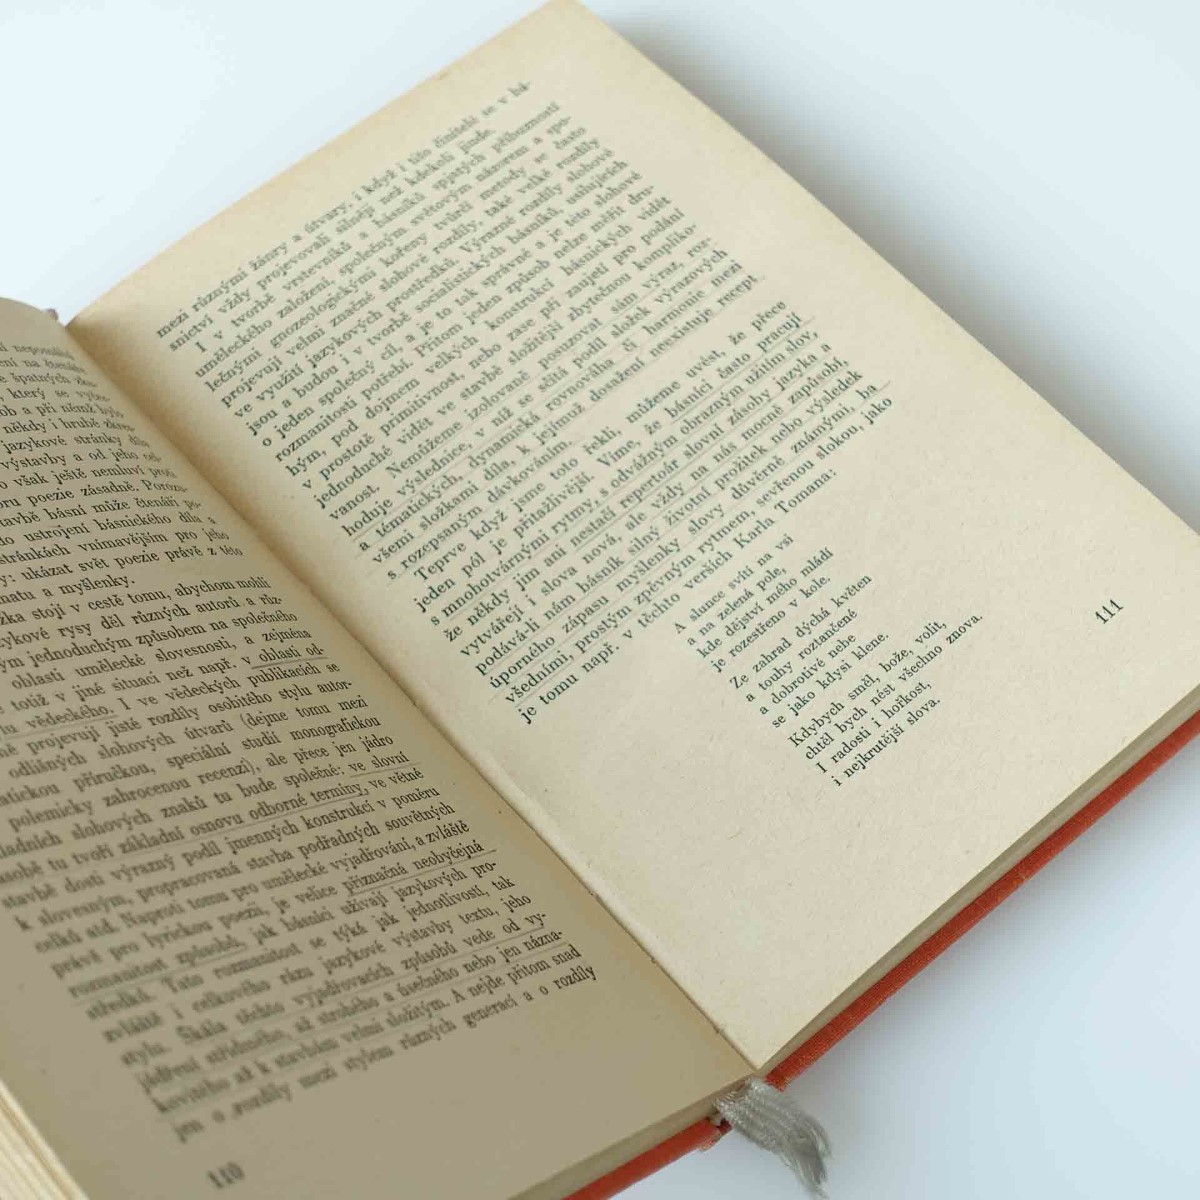 í neponáhat
ení na čtenáře
e špatných zku-
, který se vybe-
ob a při němž bylo
někdy i hrubě zkres-
jazykové stránky díla
výstavby a od jeho cel-
o však ještě nemluví proti
oru poezie zásadně. Porozu-
tavbě básní může čtenáři po-
do ustrojení básnického díla a
stránkách vnímavějším pro jeho
y: ukázat svět poezie právě z této
matu a myšlenky.
žka stojí v cestě tomu, abychom mohli
zykové rysy děl různých autorů a růz-
ým jednoduchým způsobem na společného
oblasti umělecké slovesnosti, a zejména
e totiž v jiné situaci než např. v oblasti od-
lu vědeckého. I ve vědeckých publikacích se
ě projevují jisté rozdíly osobitého stylu autor-
odlišných slohových útvarů (dejme tomu mezi
atickou příručkou, speciální studií monografickou
polemicky zahrocenou recenzí), ale přece jen jádro
ladních slohových znaků tu bude společné: ve slovní
asobě tu tvoří základní osnovu odborné termíny, ve větné
stavbě dosti výrazný podíl jmenných konstrukcí v poměru
k slovesným, propracovaná stavba podřadných souvětných
celků atd. Naproti tomu pro umělecké vyjadřování, a zvláště
právě pro lyrickou poezii, je velice příznačná neobyčejná
rozmanitost způsobů, jak básníci užívají jazykových pro-
středků. Tato rozmanitost se týká jak jednotlivostí, tak
zvláště i celkového rázu jazykové výstavby textu, jeho
stylu. Škála těchto vyjadřovacích způsobů vede od vy-
jádření střídmého, až strohého a úsečného nebo jen názna-
kovitého až k stavbám velmi složitým. A nejde přitom snad
jen o rozdíly mezi stylem různých generací a o rozdíly
110
mezi různými žánry a útvary, i když i tito činitelé se v bá-
snictví vždy projevovali silněji než kdekoli jinde.
I v tvorbě vrstevníků a básníků spjatých příbuzností
uměleckého založení, společným světovým názorem a spo-
lečnými gnozeologickými kořeny tvůrčí metody se často
projevují velmi značné slohové rozdíly, také velké rozdíly
ve využití jazykových prostředků. Výrazné rozdíly slohové
jsou a budou i v tvorbě socialistických básníků, usilujících
o jeden společný cíl, a je to tak správné a je této slohové
rozmanitosti potřebí. Přitom jeden způsob nelze měřit dru-
hým, pod dojmem velkých konstrukcí básnických vidět
v prostotě primitivnost, nebo zase při zaujetí pro podání
jednoduché vidět ve stavbě složitější zbytečnou kompliko-
vanost. Nemůžeme izolovaně posuzovat sám výraz, roz-
hoduje výslednice, v níž se sčítá podíl složek výrazových
a tématických, dynamická rovnováha či harmonie mezi
všemi složkami díla, k jejímuž dosažení neexistuje recept
s rozepsaným dávkováním.
Teprve když jsme toto řekli, můžeme uvést, že přece
jeden pól je přitažlivější. Víme, že básníci často pracují
s mnohotvárnými rytmy, s odvážným obrazným užitím slov,
že někdy jim ani nestačí repertoár slovní zásoby jazyka a
vytvářejí i slova nová, ale vždy na nás mocně zapůsobí,
podává-li nám básník silný životní prožitek nebo výsledek
úporného zápasu myšlenky slovy důvěrně známými, ba
všedními, prostým zpěvným rytmem, sevřenou slokou, jako
je tomu např. v těchto verších Karla Tomana:
A slunce svítí na vsi
a na zelená pole,
kde dětství mého mládí
je rozestřeno v kole.
Ze zahrad dýchá květen
a touhy roztančené
a dobrotivé nebe
se jako kdysi klene.
Kdybych směl, bože, volit,
chtěl bych nést všechno znova.
I radosti i hořkost,
i nejkrutější slova.
111